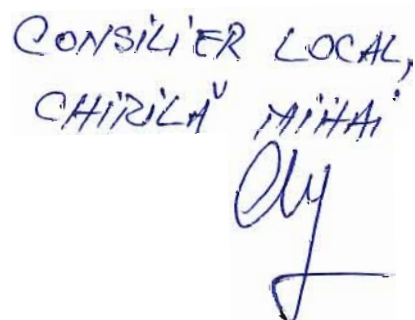 CONSILIER LOCAL,
CHIRILĂ MIHAI